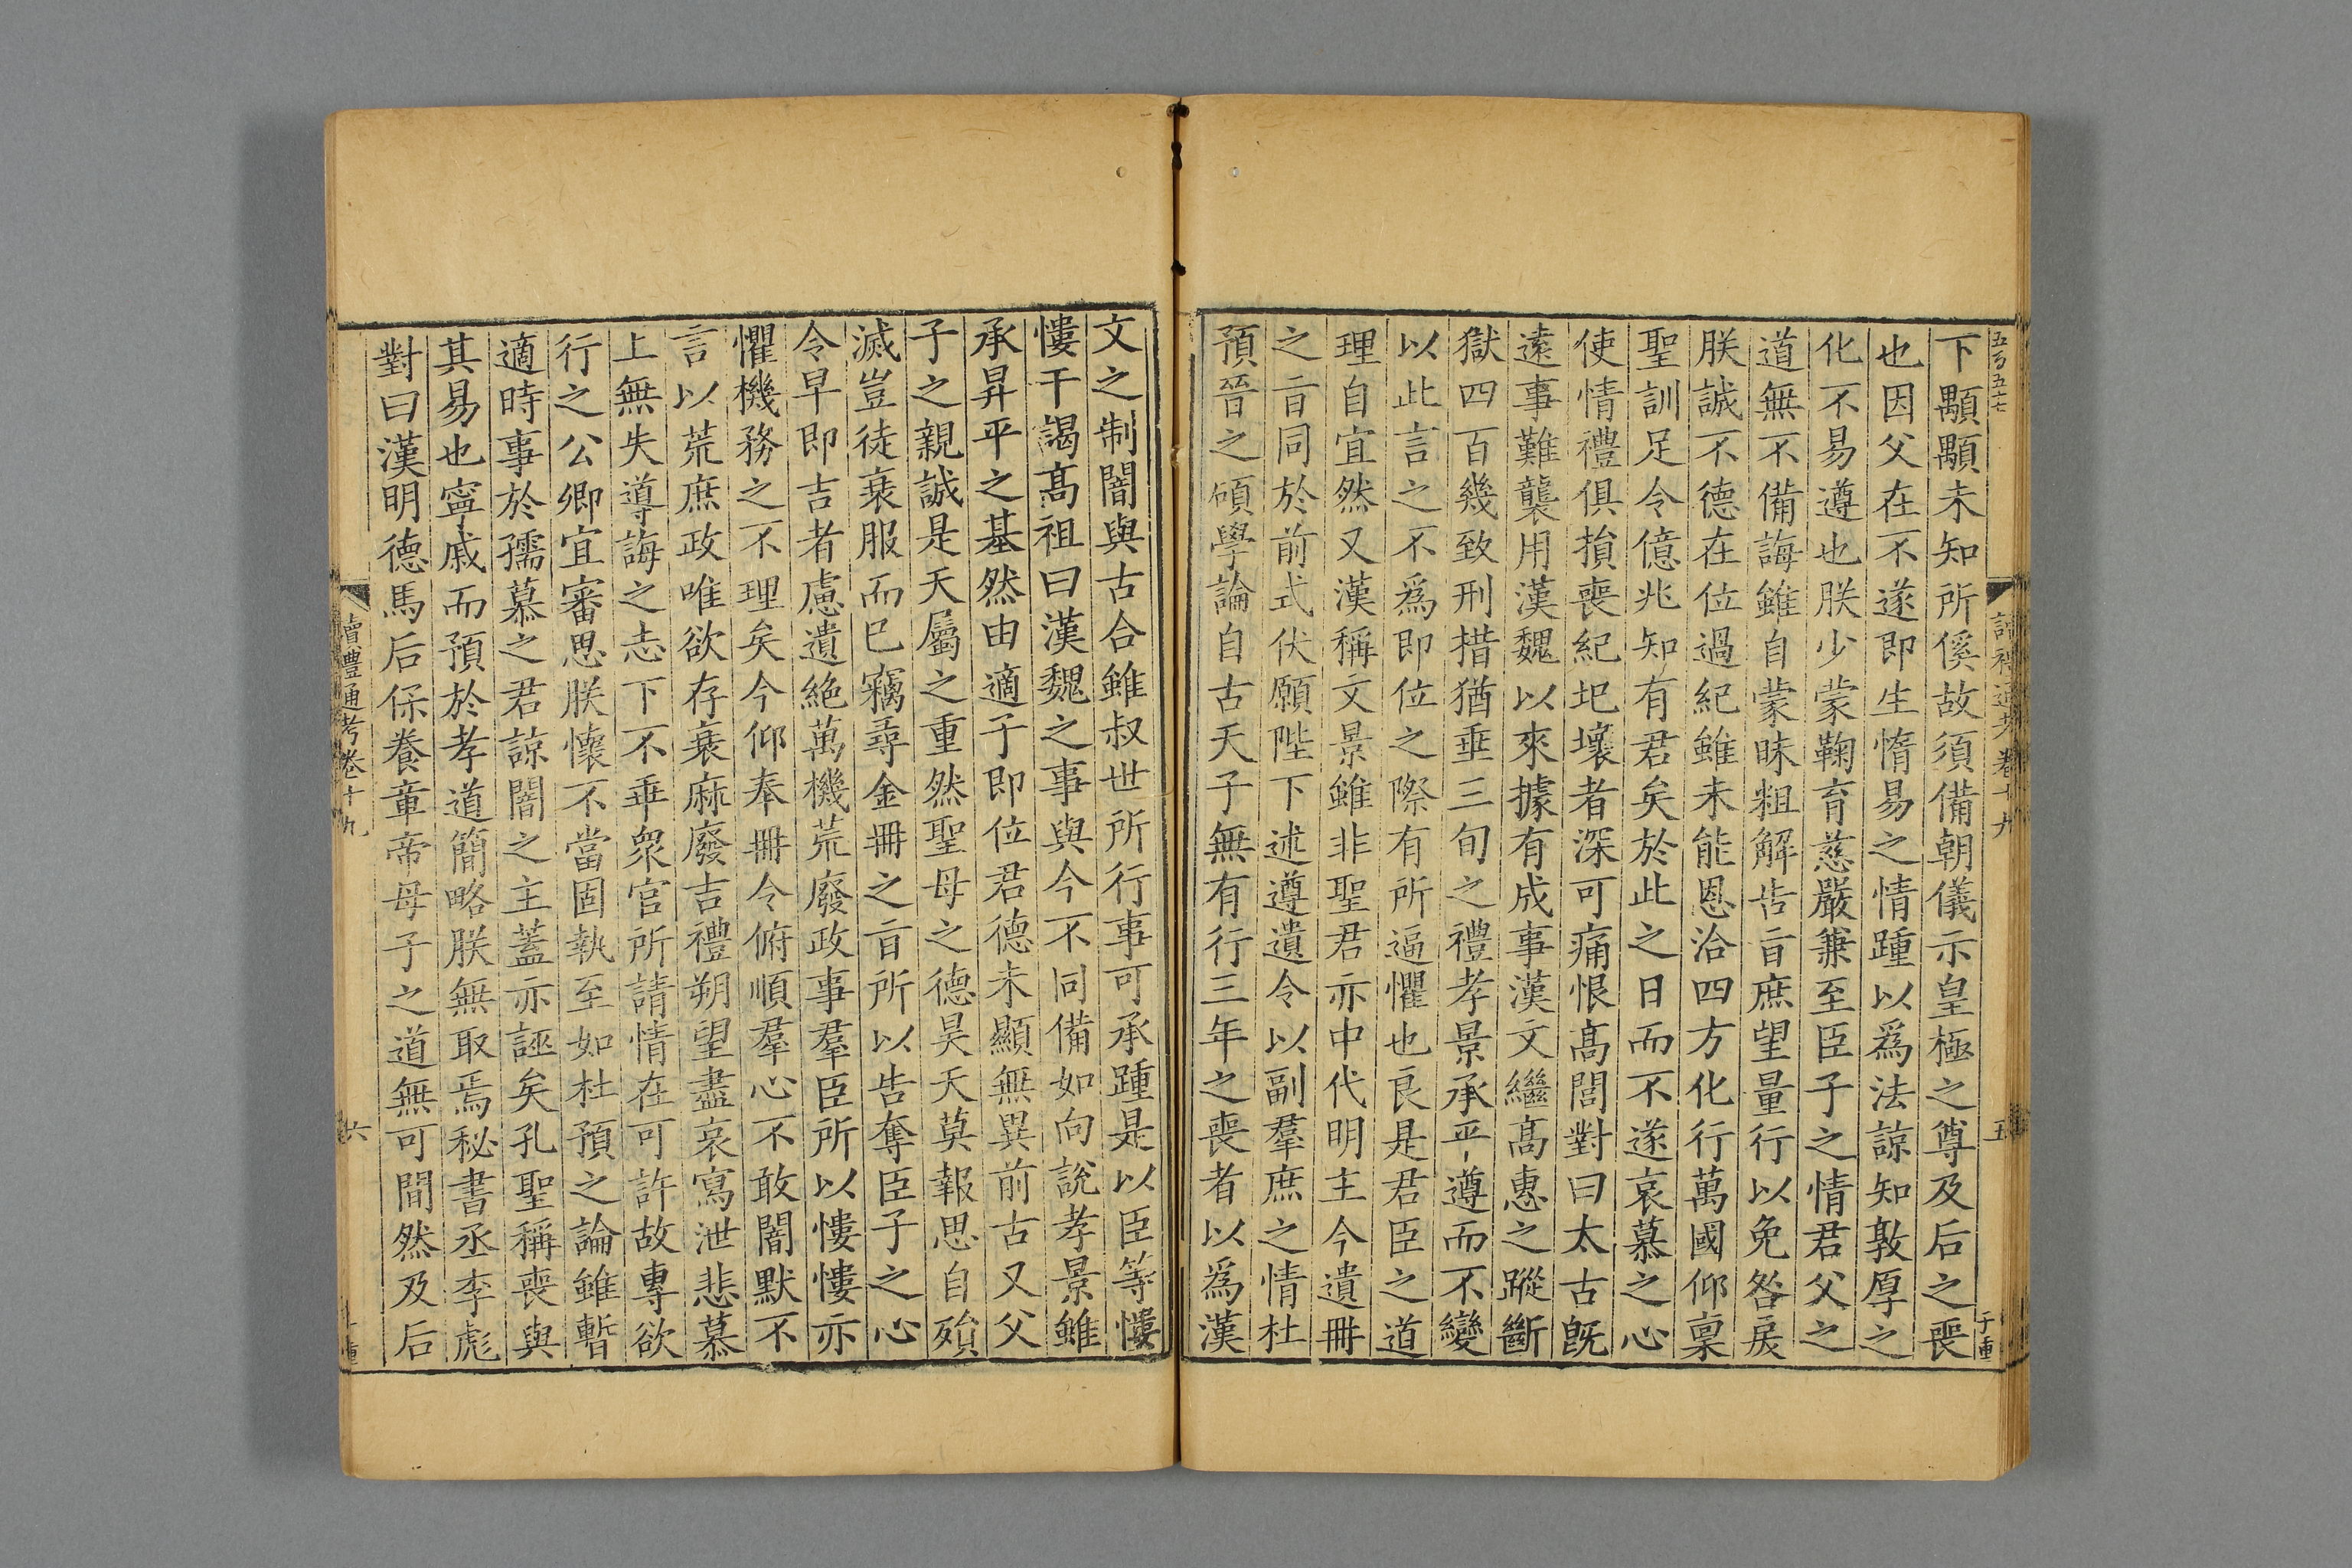 下顒顒未知所傒故須備朝儀示皇極之尊及后之喪
也因父在不遂即生惰易之情踵以爲法諒知敦厚之
化不易遵也朕少蒙鞠育慈嚴兼至臣子之情君父之
道無不備誨雖自蒙昧粗解告旨庶望量行以免咎戾
朕誠不德在位過紀雖未能恩洽四方化行萬國仰稟
聖訓足令億兆知有君矣於此之日而不遂哀慕之心
使情禮俱損喪紀圯壞者深可痛恨高閭對曰太古既
遠事難襲用漢魏以來據有成事漢文繼高惠之蹤斷
獄四百幾致刑措猶垂三旬之禮孝景承平遵而不變
以此言之不爲即位之際有所逼懼也良是君臣之道
理自宜然又漢稱文景雖非聖君亦中代明主今遺冊
之旨同於前式伏願陛下述遵遺令以副羣庶之情杜
預晉之碩學論自古天子無有行三年之喪者以爲漢
文之制闇與古合雖叔世所行事可承踵是以臣等慺
慺干謁高祖曰漢魏之事與今不同備如向說孝景雖
承昇平之基然由適子即位君德未顯無異前古又父
子之親誠是天屬之重然聖母之德昊天莫報思自殞
滅豈徒衰服而已竊尋金冊之旨所以告奪臣子之心
令早即吉者慮遺絕萬機荒廢政事羣臣所以慺慺亦
懼機務之不理矣今仰奉冊令俯順羣心不敢闇默不
言以荒庶政唯欲存衰麻廢吉禮朔望盡哀寫泄悲慕
上無失導誨之志下不乖衆官所請情在可許故專欲
行之公卿宜審思朕懷不當固執至如杜預之論雖暫
適時事於孺慕之君諒闇之主蓋亦誣矣孔聖稱喪與
其易也寧戚而預於孝道簡略朕無取焉秘書丞李彪
對曰漢明德馬后保養章帝母子之道無可間然及后
讀禮通考卷十九
六